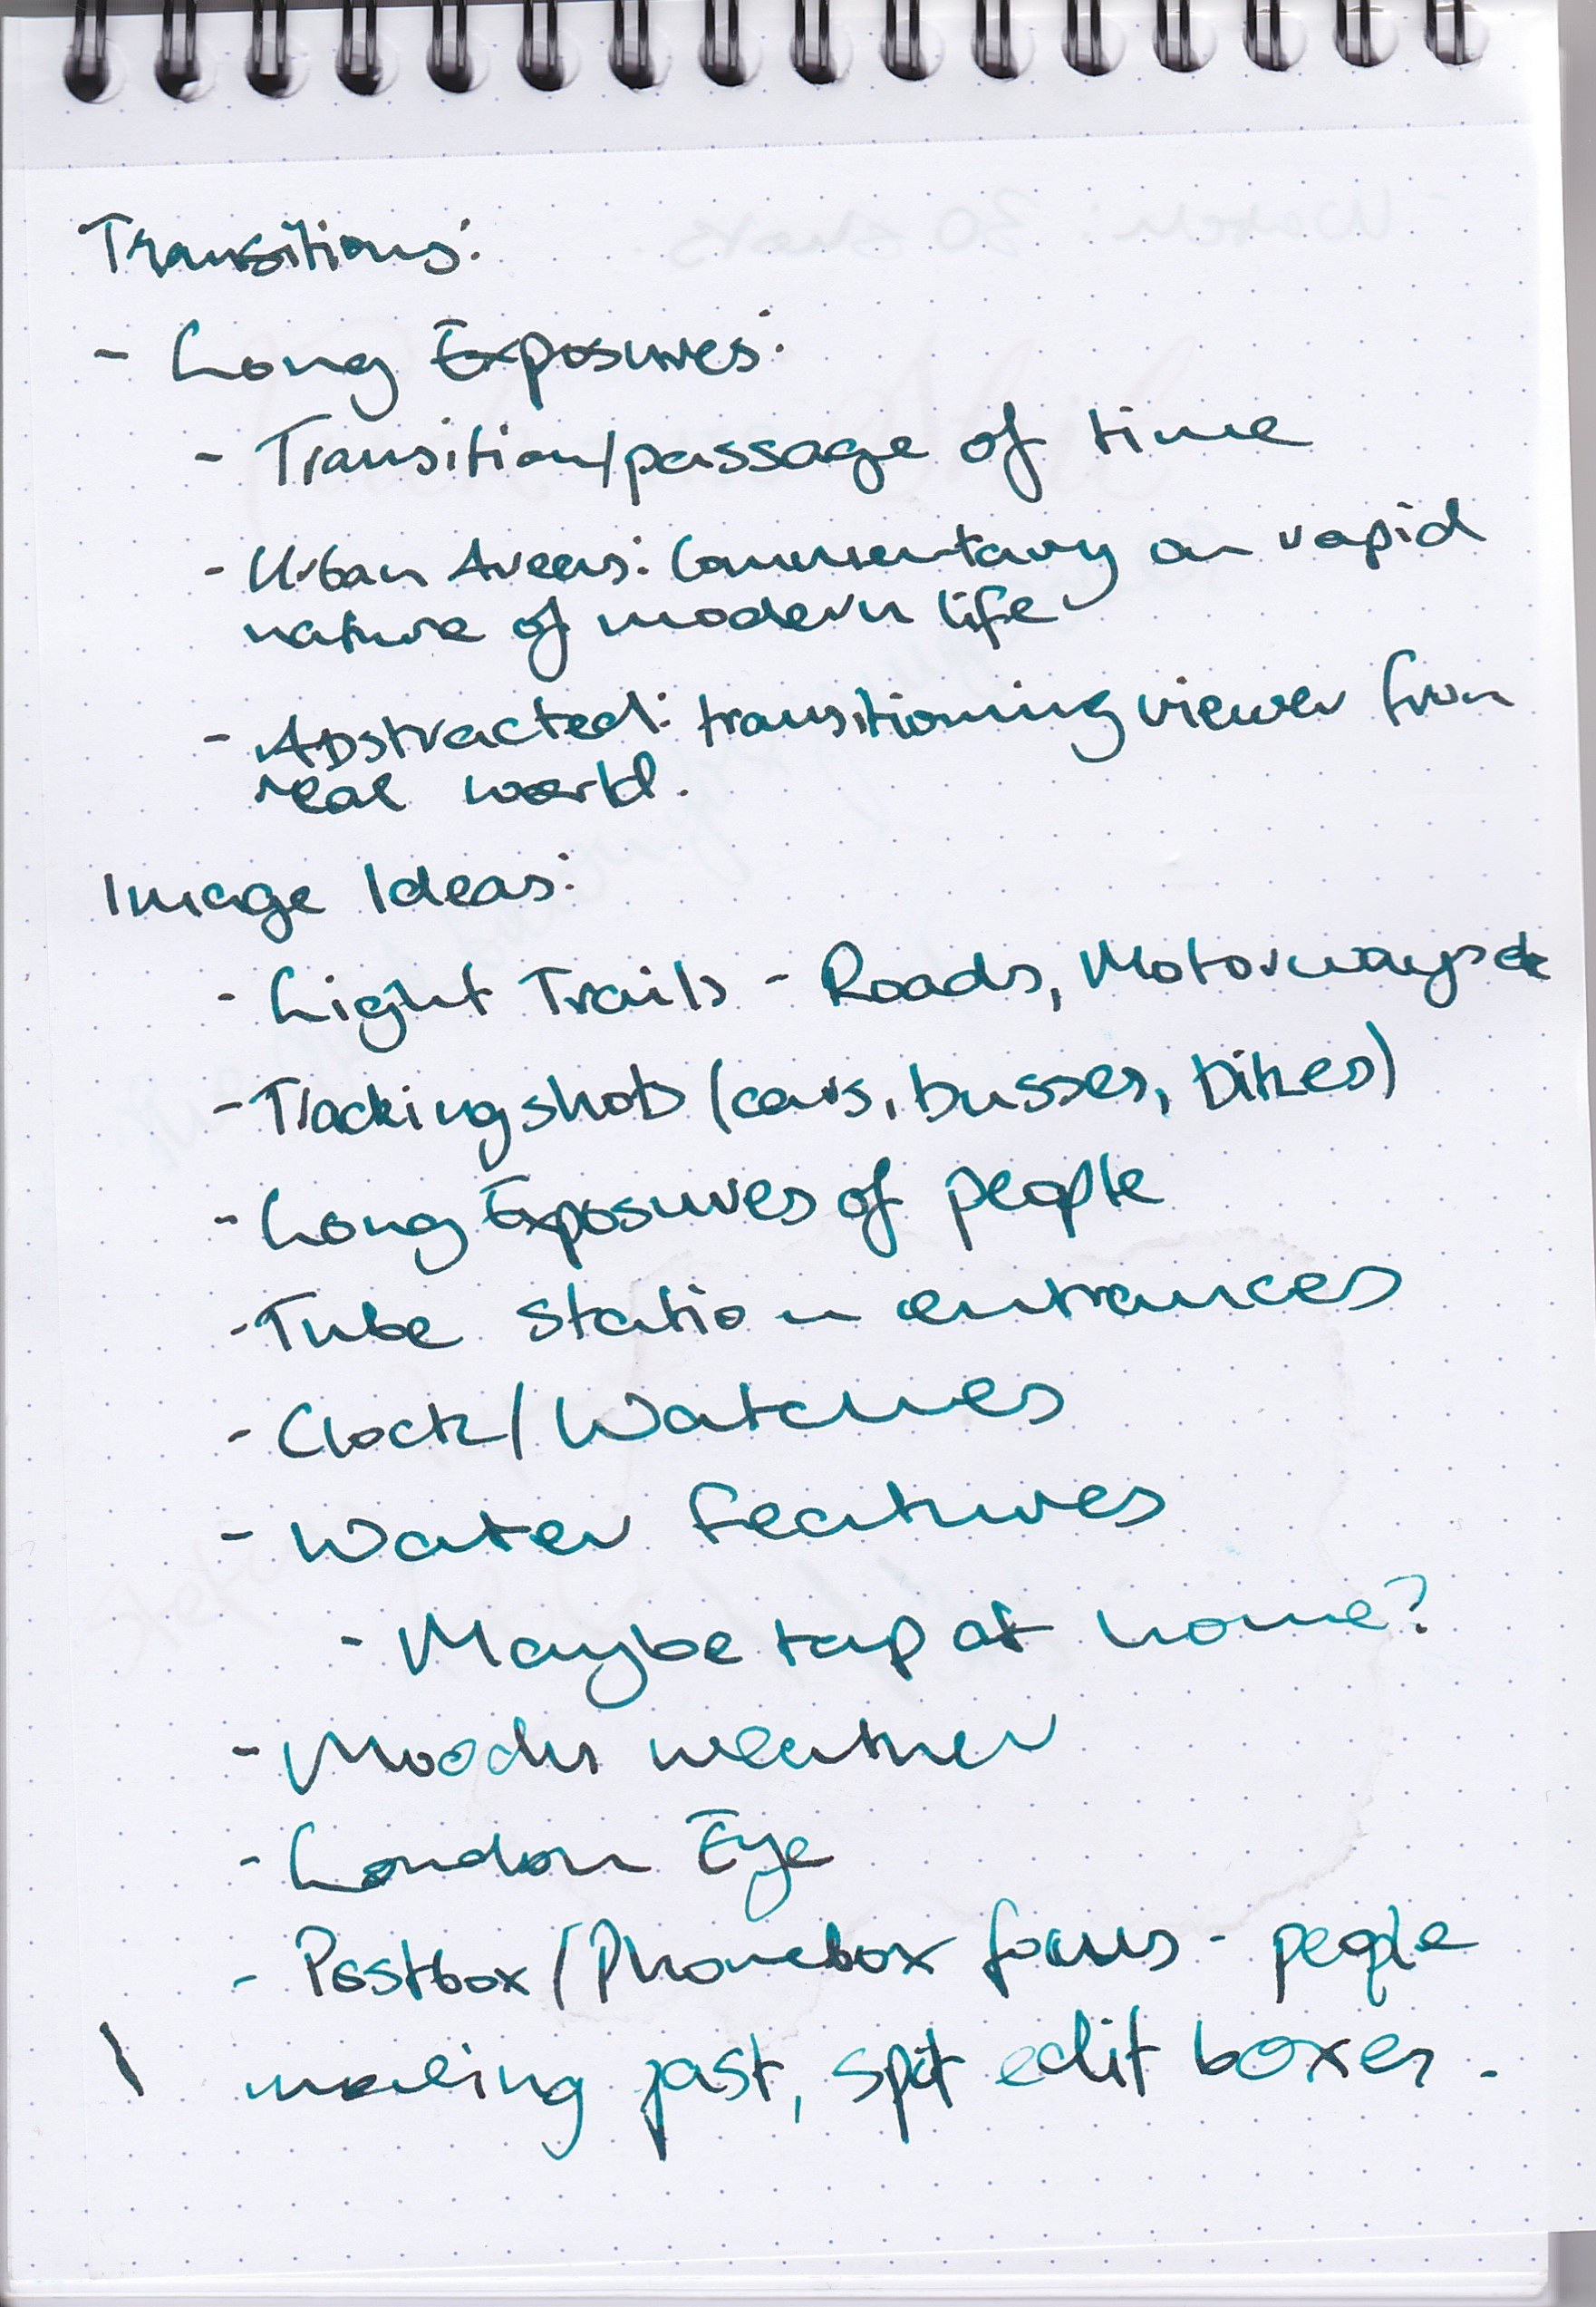 Transitions:
- Long Exposures:
- Transition/passage of time
- Urban Areas: Commentary on rapid
nature of modern life
- Abstracted: transitioning viewer from
real world.
Image Ideas:
- Light Trails - Roads, Motorways
- Tracking shots (cars, busses, bikes)
- Long Exposures of people
- Tube station entrances
- Clock/Watches
- Water features
- Maybe tap at home?
- Moody weather
- London Eye
- Postbox/Phonebox focus - people
past, edit boxes.